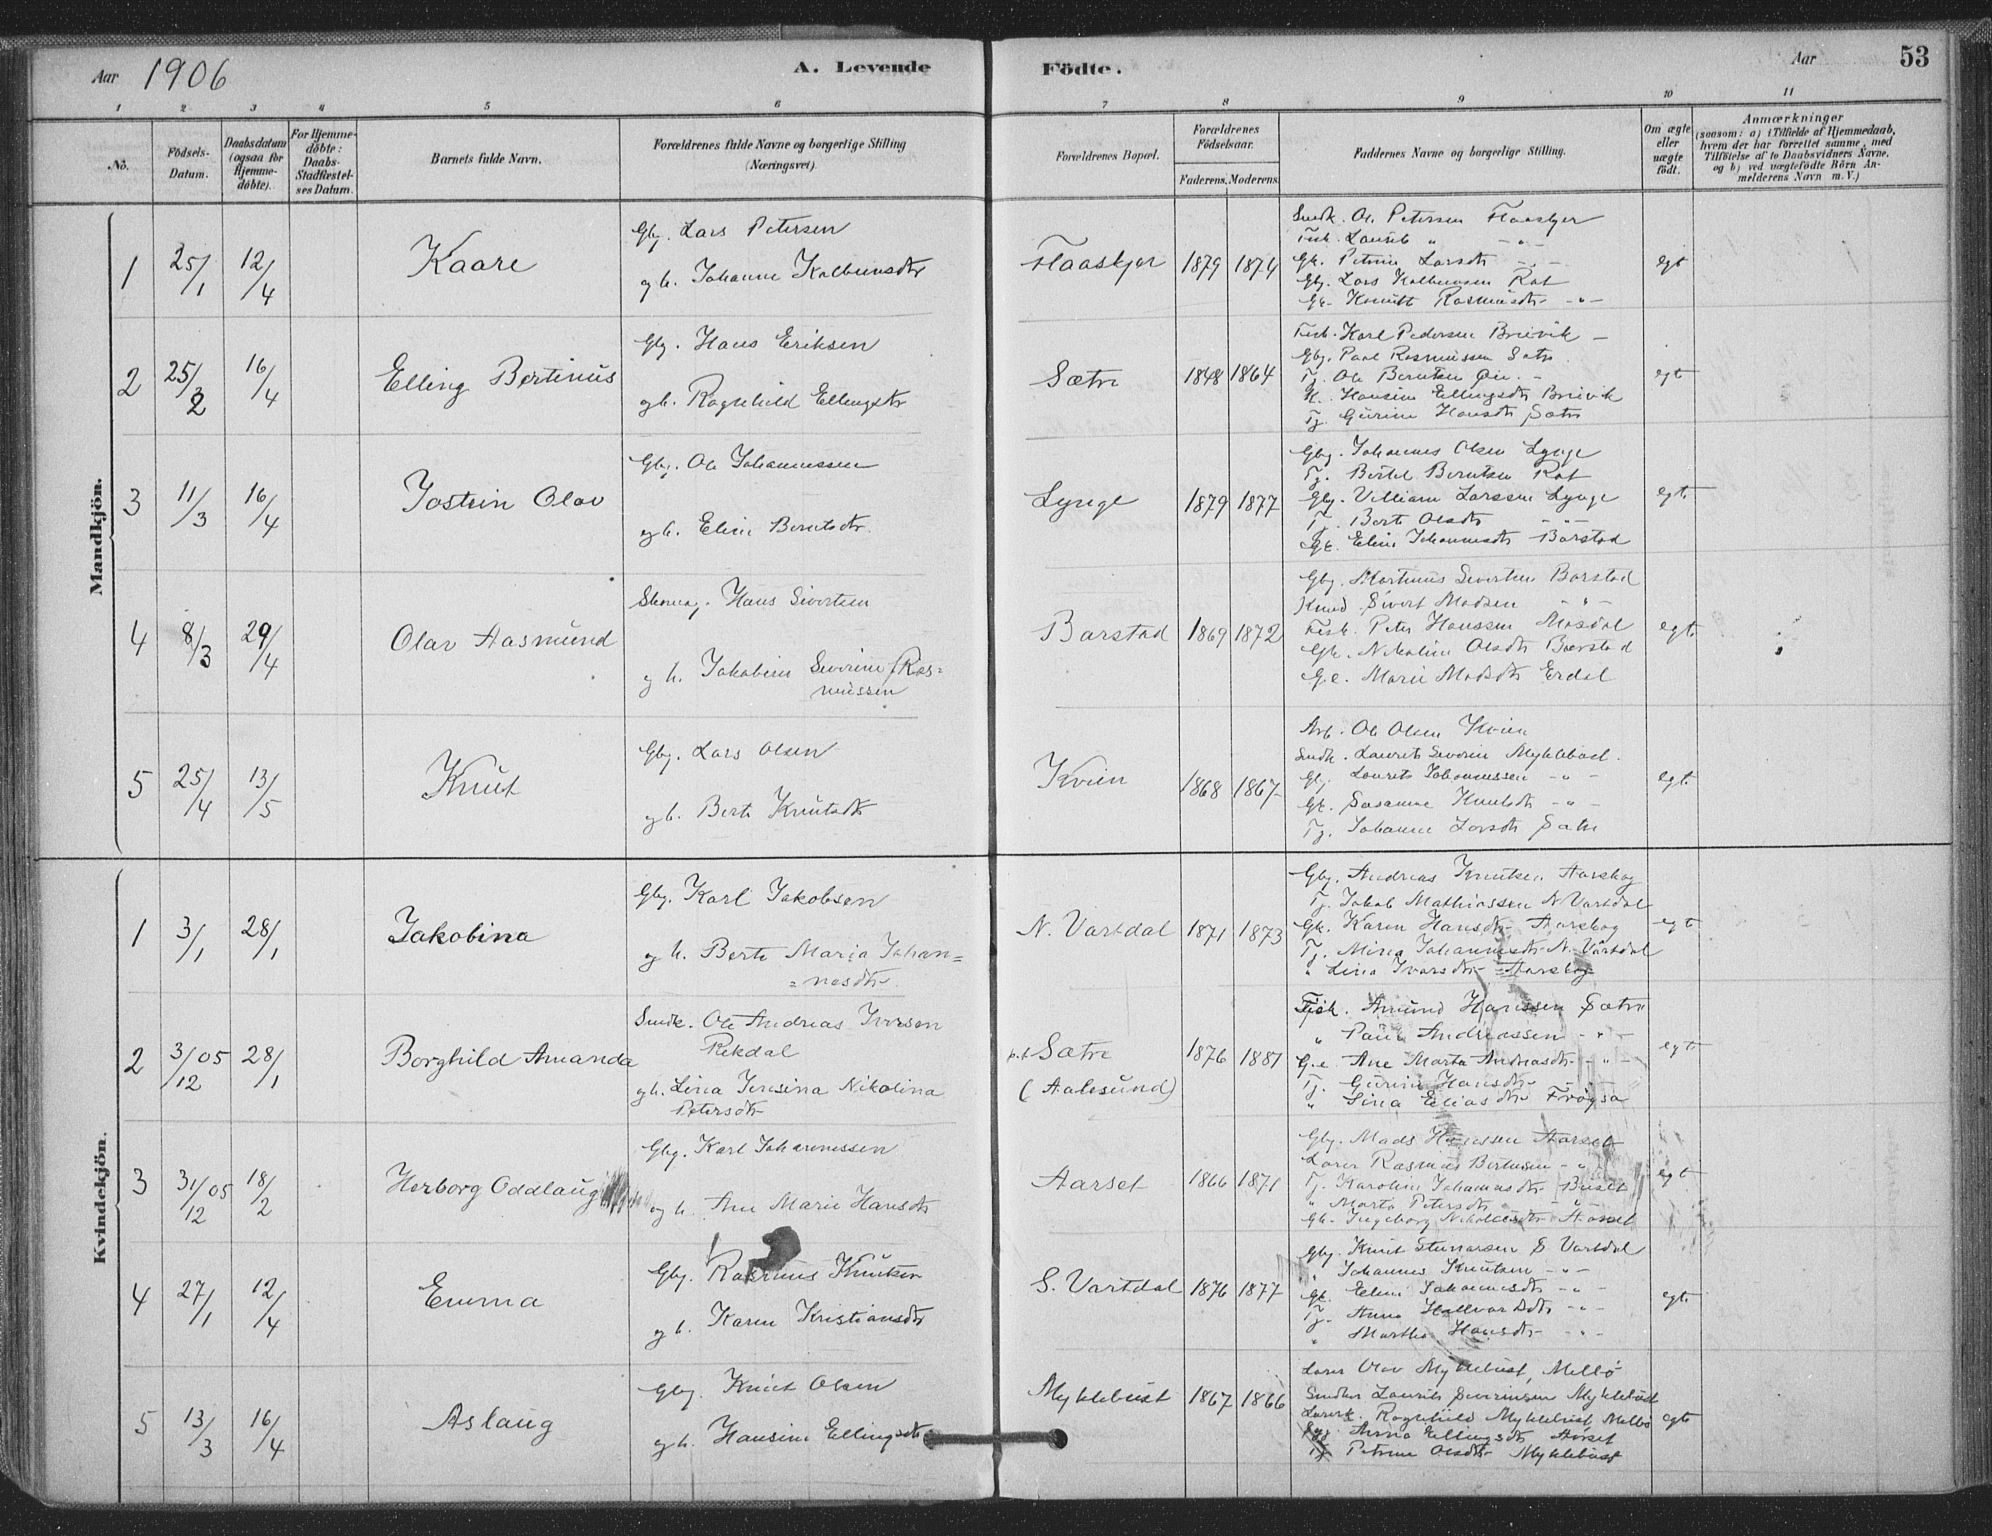 Aar 1906
A. Levende Födte.
Aar
53
1 2 3 4 5 6 7 8 9 10 11
No.
Födsels-Datum.
Daabsdatum (ogsaa for Hjemmedöbte).
For Hjemmedöbte: Daabs-Stadfæstelses Datum.
Barnets fulde Navn.
Forældrenes fulde Navne og borgerlige Stilling (Næringsvei).
Forældrenes Bopæl.
Forældrenes Födselsaar.
Faderens. Moderens.
Faddernes Navne og borgerlige Stilling.
Om ægte eller uægte födt.
Anmærkninger
(saasom: a) i Tilfælde af Hjemmedaab,
hvem der har forrettet samme, med
Tilföielse af to Daabsvidners Navne,
og b) ved uægtefödte Börn An-
melderens Navn m. V.)
Mandkjön.
1 25/1 12/4 Kaare
Gbg. Lars Petersen
og h. Johanne Kolbeinsdtr
Flaaskjer 1879 1874
Smdk. Ole Petersen Flaaskjer
Fisk. Laurits " - " -
Gk. Petrine Larsdtr - " -
Gbg. Lars Kolbeinsen Rot
Gk. Knutt Rasmusdtr - " -
egt
2 25/2 16/4 Elling Bertinus
Gbg. Hans Eriksen
og h. Ragnhild Ellingsdtr
Sætre 1848 1864
Fisk. Karl Pedersen Breivik
Gbg. Paul Rasmussen Sætre
Tj. Ole Berntsen Øie
K. Hansine Ellingsdtr Breivik
Tj. Gurine Hansdtr Sætre
egt
3 11/3 16/4 Jostein Olav
Gbg. Ole Johannessen
og h. Eline Berntsdtr.
Lynge 1879 1877
Gbg. Johannes Olsen Lynge
Tj. Bertel Berntsen Rot
Gbg. Villiam Larssen Lynge
Tj. Berte Olsdtr - " -
Gk. Eline Johannesdtr Barstad
egt.
4 8/3 29/4 Olav Aasmund
Hans Sivertsen
og h. Jakobine Severine (Ras=
mussen
Barstad 1869 1872
Gbg. Martinus Sivertsen Barstad
Sivert Madsen - " -
Fisk. Peter Hanssen Mosdal
Gk. Nikoline Olsdtr Barstad
G.e. Marie Madsdtr Erdal
egt.
5 25/4 13/5 Knut
Gbg. Lars Olsen
og h. Berte Knutsdtr
Kvien 1868 1867
Arb. Ole Olsen Kvien
Smdk. Laurits Severin Myklebust.
Gbg. Laurits Johannessen - " -
Gk. Susanne Knutsdtr - " -
Tj. Johanne Larsdtr Sætre
egt.
Kvindekjön.
1 3/1 28/1 Jakobina
Gbg. Karl Jakobsen
og h. Berte Maria Johan=
=nesdtr.
N. Vartdal 1871 1873
Gbg. Andreas Knutsen Aarskog
Tj. Jakob Mathiassen N Vartdal
Gk. Karen Hansdtr Aarskog
Tj. Mina Johannesdtr N. Vartdal
" Lina Ivarsdtr Aarskog
egt
2 3/12 05 28/1 Borghild Amanda
Smdk. Ole Andreas Iversen
Rekdal
og h. Lina Jensina Nikolina
Petersdtr
p.t Sætre
(Aalesund)
1876 1881
Fisk. Amund Hanssen Sætre
" Paul Andreassen - " -
G.e. Ane Marta Andreasdtr - " -
Tj. Gurine Hansdtr - " -
" Lina Eliasdtr Frøysa
egt.
3 31/12 05 18/2 Herborg Oddlaug
Gbg. Karl Johannessen
og h. Ane Marie Hansdtr
Aarset 1866 1871
Gbg. Mads Hanssen Aarset
Lærer Rasmus Bertnesen - " -
Tj. Karoline Johannesdtr Buset
" Marta Petersdtr "
Gk. Ingeborg Nikolaisdtr Aarset
egt
4 27/1 12/4 Emma
Gbg. Rasmus Knutsen
og h. Karen Kristiansdtr
S. Vartdal 1876 1877
Gbg. Knut Steinarsen S Vartdal
" Johannes Knutsen - " -
Gk. Eline Johannesdtr - " -
Tj. Anne Hallvarddtr - " -
" Marthe Hansdtr - " -
egt.
5 13/3 16/4 Aslaug
Gbg. Knut Olsen
og h. Hansine Ellingsdtr
Myklebust 1867 1866
Lærer Olav Myklebust, Mellø
Smdk. Laurits Severinsen Myklebust
Lærerk. Ragnhild Myklebust Mellø
Anna Ellingsdtr Aarset
Tj Petrine Olsdtr Myklebust
egt.